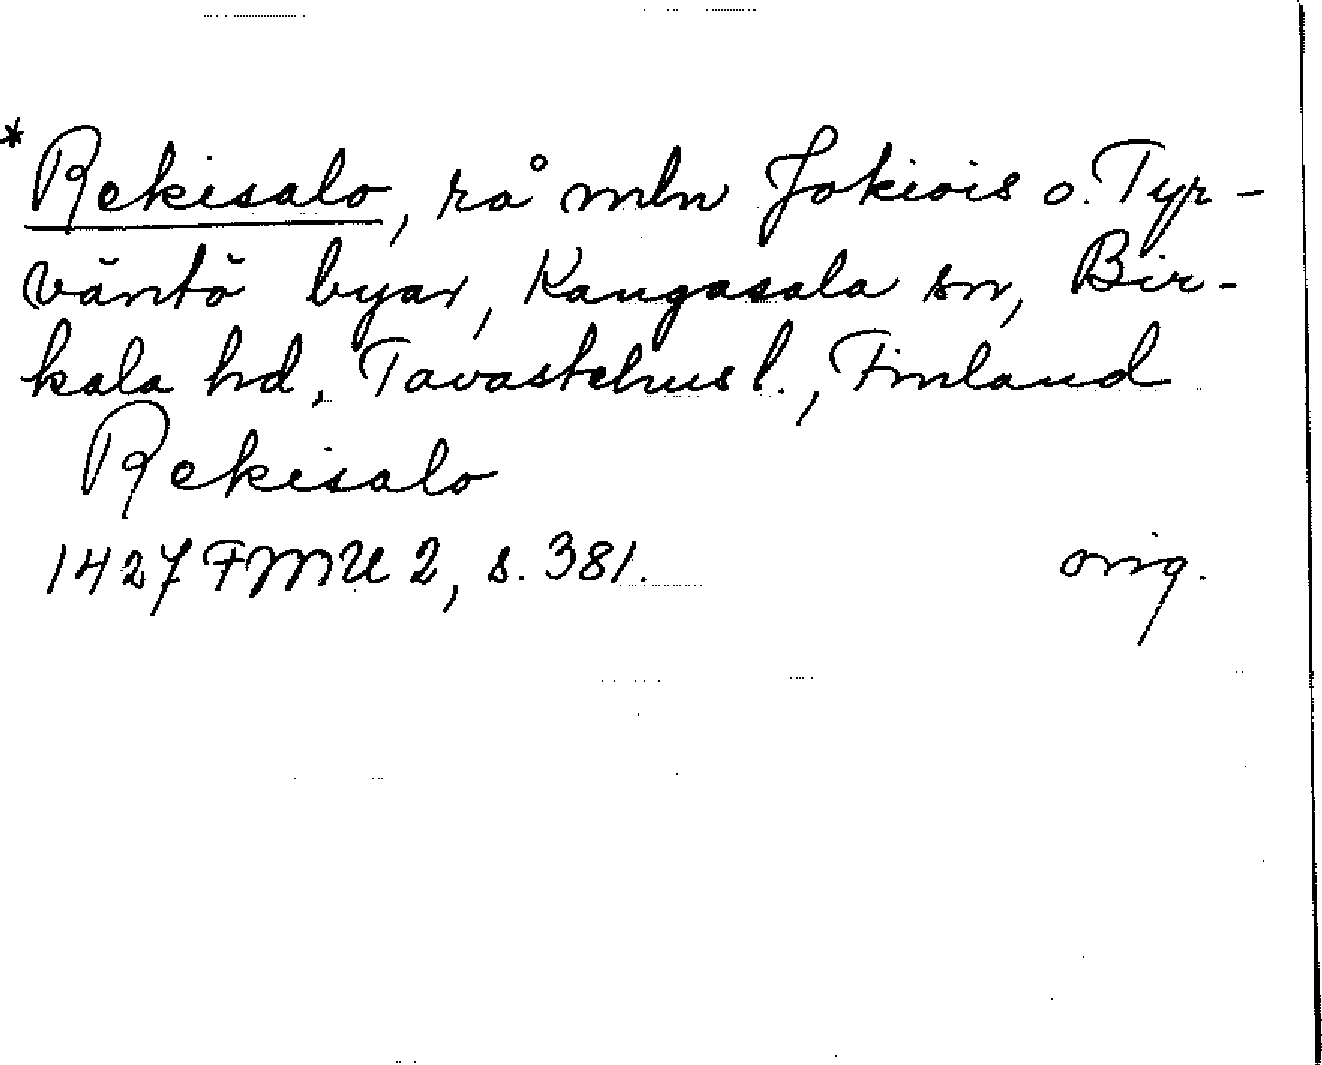 *Rekisalo, rå mln Jokiois o. Tyr-
väntö byar, Kangasala sn, Bir-
kala hd, Tavastehus l., Finland
Rekisalo
1427 FMU 2, s. 381. orig.